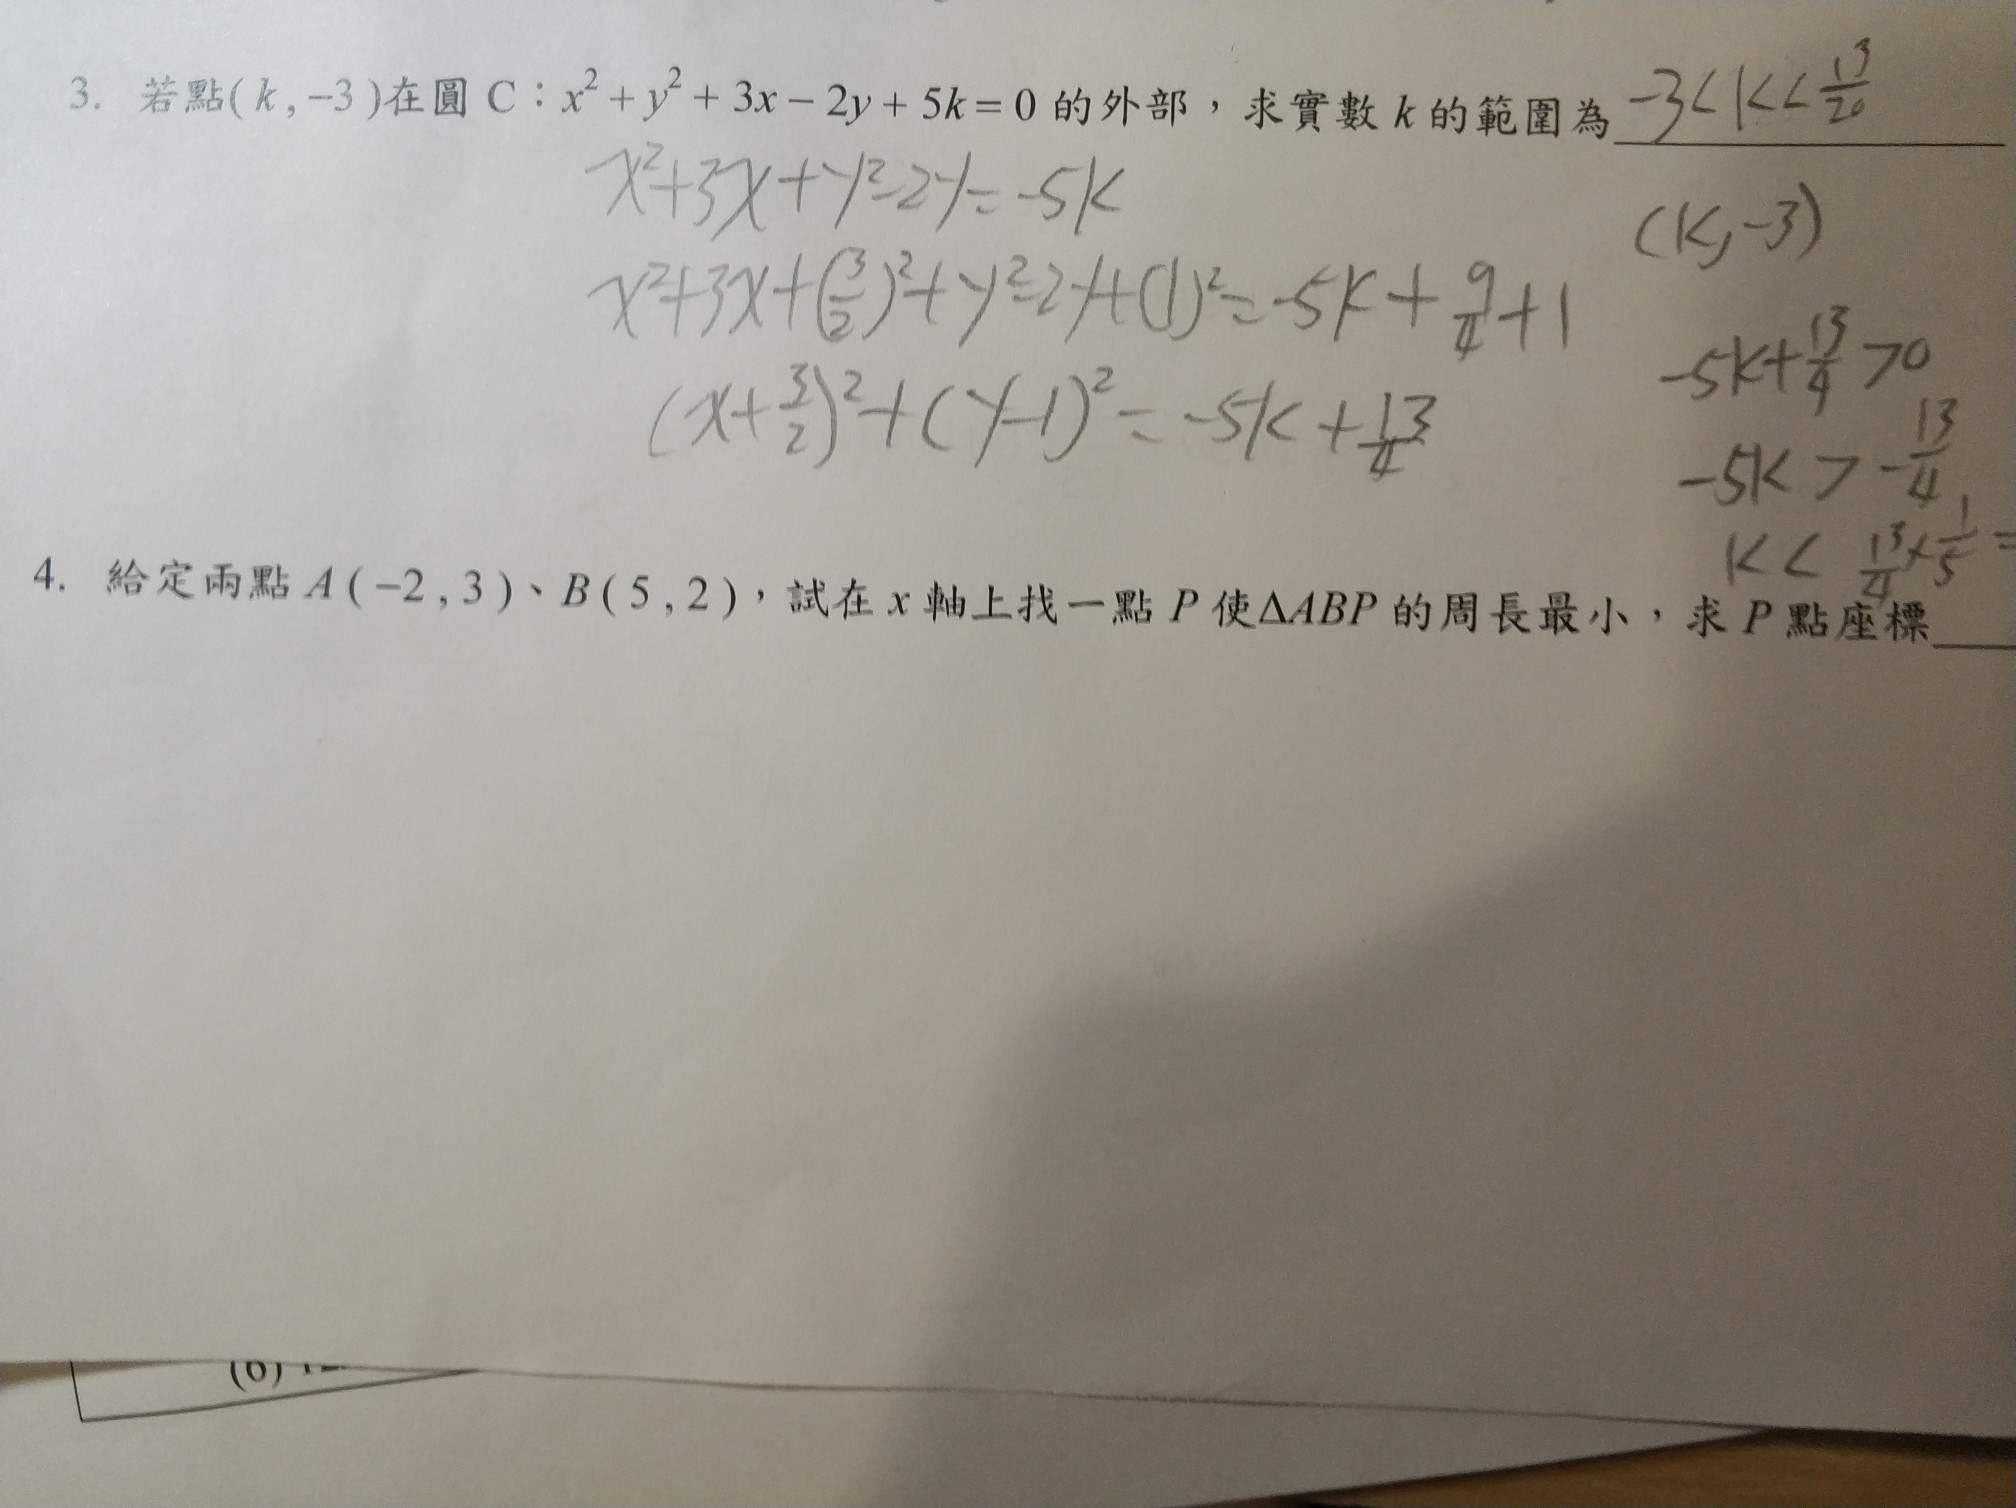 3. 若點(k,−3)在圓 C：x²+y²+3x−2y+5k=0 的外部，求實數 k 的範圍為 -3<k<13/20
x²+3x+y²-2y=-5k
(k,-3)
x²+3x+(3/2)²+y²-2y+(1)²=-5k+9/4+1
-5k+13/4>0
(x+3/2)²+(y-1)²=-5k+13/4
-5k>-13/4
k<13/4×1/5=
4. 給定兩點 A(−2,3)、B(5,2)，試在 x 軸上找一點 P 使ΔABP 的周長最小，求 P 點座標
(6)